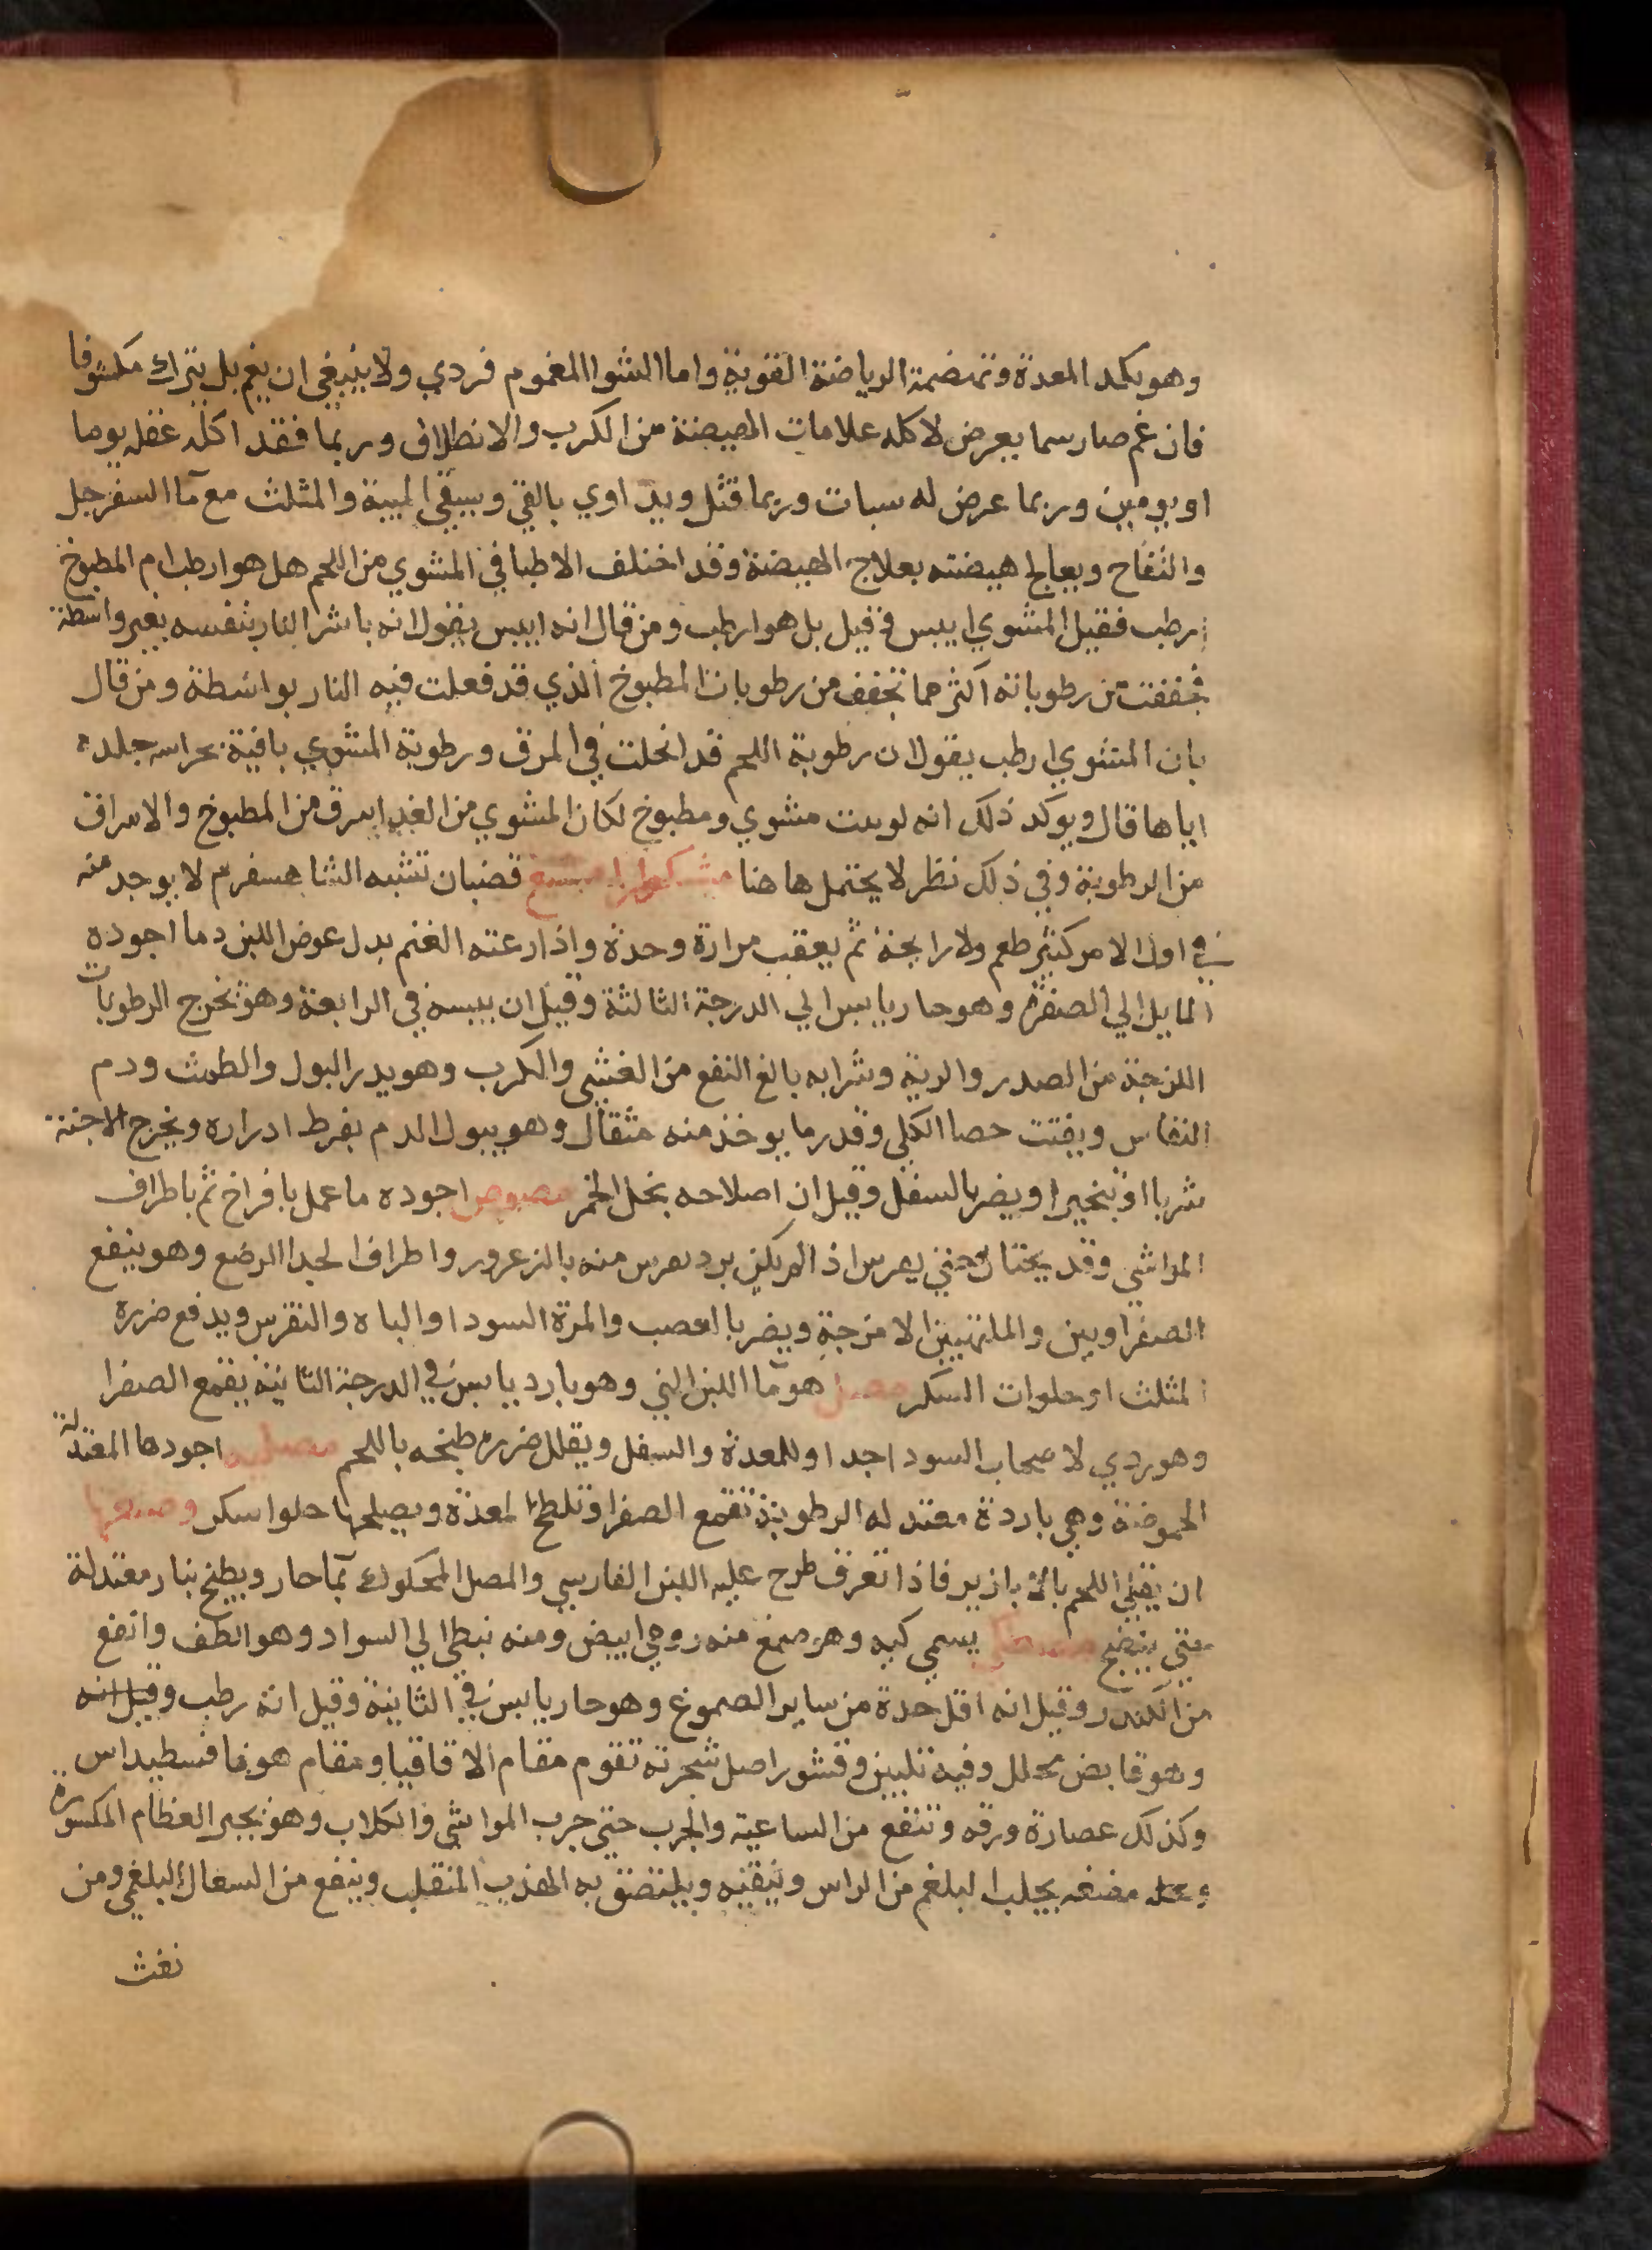 وهو يكد المعدة وتهضمة الرياضة القوية واما الشوا المغموم فردي ولا ينبغي ان يغم بل يترك مكشوفا
فان غم صار سما يعرض لاكله علامات الهيضة من الكرب والانطلاق وربما فقد اكله عقله يوما
او يومين وربما عرض له سبات وربما قتل ويداوي بالقي ويسقي الميبة والمثلث مع مآ السفرجل
والتفاح ويعالج هيضته بعلاج الهيضة وقد اختلف الاطبا في المشوي من اللحم هل هو ارطب ام المطبوخ
ارطب فقيل المشوي ايبس وقيل بل هو ارطب ومن قال انه ايبس يقول انه باشر النار بنفسه بغير واسطة
فجففت من رطوباته اكثر مما تجفف من رطوبات المطبوخ الذي قد فعلت فيه النار بواسطة ومن قال
بان المشوي ارطب يقول ان رطوبة اللحم قد انحلت في المرق ورطوبة المشوي باقية بحراسه جلده
اياها قال ويوكد ذلك انه لو بيت مشوي ومطبوخ لكان المشوي من الغد اسرق من المطبوخ والاسراق
من الرطوبة وفي ذلك نظر لا يحتمل هاهنا مشكطرامشيغ قضبان تشبه الشاهسفرم لا يوجد منه
في اول الامر كثير طعم ولا رايحة ثم يعقب مرارة وحدة واذا رعته الغنم بدل عوض اللبن دما اجوده
المايل الي الصفرة وهو حار يابس الي الدرجة الثالثة وقيل ان يبسه في الرابعة وهو يخرج الرطوبات
اللزجة من الصدر والرية وشرابه بالغ النفع من الغشي والكرب وهو يدر البول والطمث ودم
النفاس ويفتت حصا الكلي وقدر ما يوخذ منه مثقال وهو يبول الدم بفرط ادراره ويخرج الاجنة
شربا او تبخيرا ويضر بالسفل وقيل ان اصلاحه بخل الخمر مصوص اجوده ما عمل بافراخ ثم باطراف
المواشي وقد يختار حتي يمرس اذ المريكن برد يمرس منه بالزعرور واطراف الجدا الرضع وهو ينفع
الصفراويين والملتهبين الامزجة ويضر بالعصب والمرة السودا والباه والنقرس ويدفع ضرره
المثلث او حلوات السكر مصل هو مآ اللبن الني وهو بارد يابس في الدرجة الثانية يقمع الصفرا
وهو ردي لاصحاب السودا جدا وللمعدة والسفل ويقلل ضرره طبخه باللحم مصليه اجودها المعتدلة
الحموضة وهي باردة معتدله الرطوبة تقمع الصفرا وتلطخ المعدة ويصلحها حلوا سكر وصنعتها
ان يقلي اللحم بالابازير فاذا تعرق طرح عليه اللبن الفارسي والمصل المحكوك بمآ حار ويطبخ بنار معتدلة
حتي ينضج مصطكي يسمي كيه وهو صمغ منه رومي ابيض ومنه نبطي الي السواد وهو الطف وانفع
من الكندر وقيل انه اقل حدة من ساير الصموغ وهو حار يابس في الثانية وقيل انه رطب وقيل انه
وهو قابض محلل وفيه تليين وقشور اصل شجرته تقوم مقام الاقاقيا ومقام هوفاقسطيداس
وكذلك عصارة ورقه وتنفع من الساعية والجرب حتي جرب المواشي والكلاب وهو يجبر العظام المكسورة
مضغه يجلب البلغم من الراس وينقيه ويلتصق به الهذب المنقلب وينفع من السعال البلغمي ومن
نفث